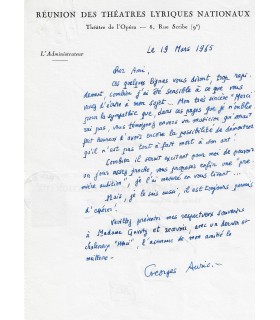 RÉUNION DES THÉATRES LYRIQUES NATIONAUX
Théâtre de l'Opéra — 8, Rue Scribe (9ᵉ)
L'Administrateur
Le 19 Mars 1965
Cher Ami,
Ces quelques lignes vous diront, trop rapi-
dement, combien j'ai été sensible à ce que vous
avez d'écrire à mon sujet. Mon très sincère "Merci"
pour la sympathie que, dans ces pages que je n'oublie-
rai pas, vous témoignez envers un musicien qui serait
fort heureux d'avoir encore la possibilité de démontrer
qu'il n'est pas tout à fait mort à son art.
Combien il serait excitant pour moi de pouvoir
un jour assez proche, vous jouer enfin une "pre-
mière audition", je l'ai montré en vous lisant...
Mais, je le sais aussi, il est toujours permis
d'espérer!
Veuillez présenter mes respectueux souvenirs
à Madame Gavoty et recevoir, avec un dernier et
chaleureux "Merci", l'assurance de mon amitié la
meilleure.
Georges Auric